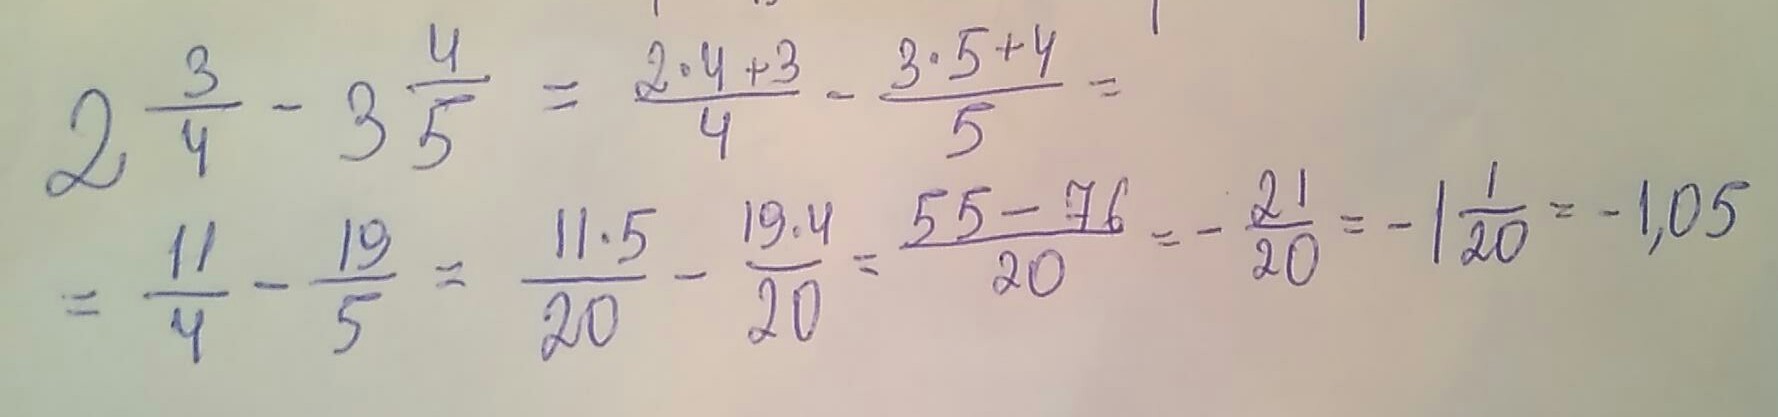 2 3/4 - 3 4/5 = (2·4+3)/4 - (3·5+4)/5 =
= 11/4 - 19/5 = (11·5)/20 - (19·4)/20 = (55-76)/20 = - 21/20 = -1 1/20 = -1,05